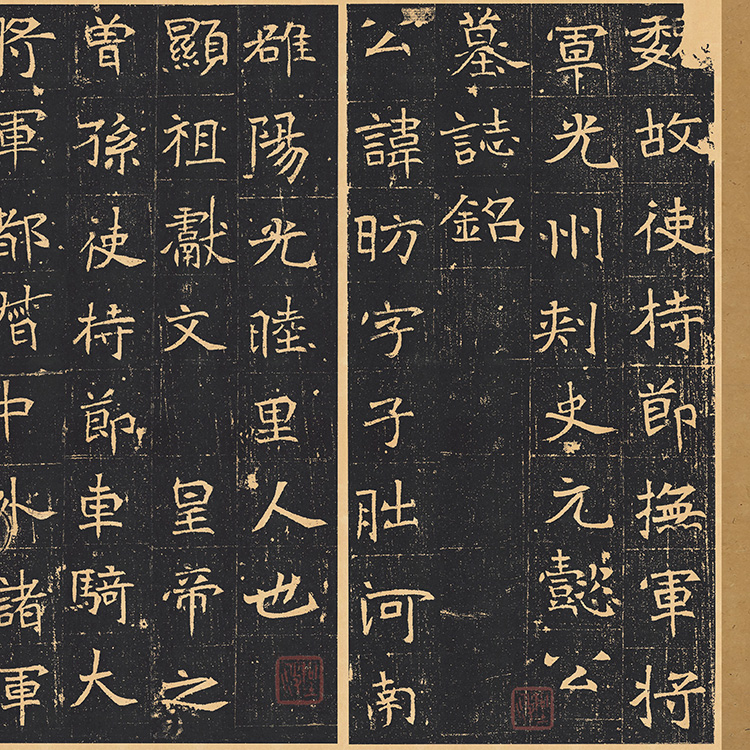 魏故使持節撫軍將
軍光州刺史元懿公
墓誌銘
公諱昉字子朏河南
雒陽光睦里人也
顯祖獻文　皇帝之
曾孫使持節車騎大
將軍都督中外諸軍